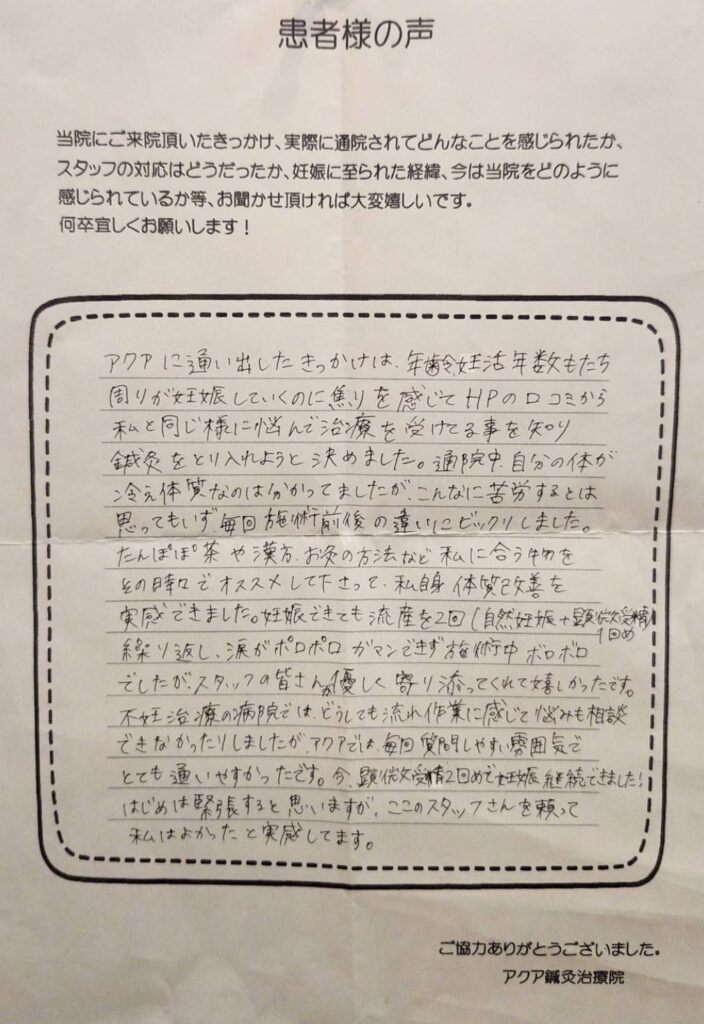 患者様の声
当院にご来院頂いたきっかけ、実際に通院されてどんなことを感じられたか、
スタッフの対応はどうだったか、妊娠に至られた経緯、今は当院をどのように
感じられているか等、お聞かせ頂ければ大変嬉しいです。
何卒宜しくお願いします！
アクアに通い出したきっかけは、年齢、妊活年数もたち
周りが妊娠していくのに焦りを感じてHPの口コミから
私と同じ様に悩んで治療を受けてる事を知り
鍼灸をとり入れようと決めました。通院中、自分の体が
冷え体質なのは分かってましたが、こんなに苦労するとは
思ってもいず毎回施術前後の違いにビックリしました。
たんぽぽ茶や漢方、お灸の方法など私に合う物を
その時々でオススメして下さって、私自身体質改善を
実感できました。妊娠できても流産を2回(自然妊娠+顕微受精1回め)
繰り返し、涙がポロポロガマンできず施術中ボロボロ
でしたが、スタッフの皆さんが優しく寄り添ってくれて嬉しかったです。
不妊治療の病院では、どうしても流れ作業に感じて悩みも相談
できなかったりしましたが、アクアでは、毎回質問しやすい雰囲気で
とても通いやすかったです。今、顕微受精2回めで妊娠継続できました！
はじめは緊張すると思いますが、ここのスタッフさんを頼って
私はよかったと実感してます。
ご協力ありがとうございました。
アクア鍼灸治療院